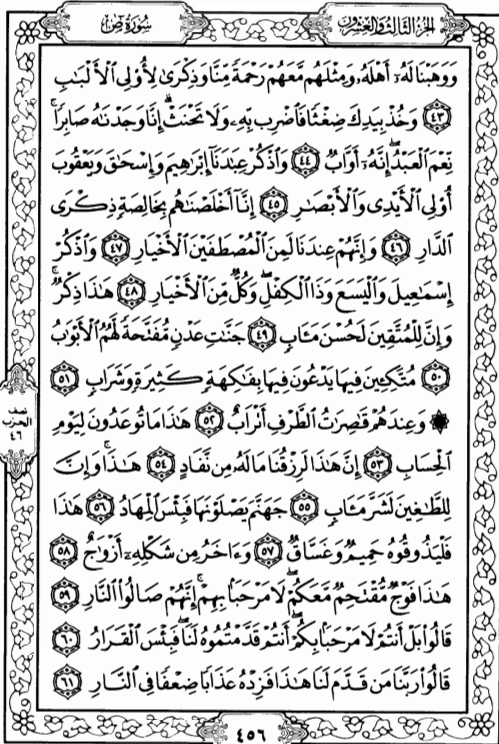 الجزء الثالث والعشرون
سورة ص
وَوَهَبْنَا لَهُۥٓ أَهْلَهُۥ وَمِثْلَهُم مَّعَهُمْ رَحْمَةً مِّنَّا وَذِكْرَىٰ لِأُو۟لِى ٱلْأَلْبَٰبِ
﴿٤٣﴾ وَخُذْ بِيَدِكَ ضِغْثًا فَٱضْرِب بِّهِۦ وَلَا تَحْنَثْ ۗ إِنَّا وَجَدْنَٰهُ صَابِرًا ۚ
نِّعْمَ ٱلْعَبْدُ ۖ إِنَّهُۥٓ أَوَّابٌ ﴿٤٤﴾ وَٱذْكُرْ عِبَٰدَنَآ إِبْرَٰهِيمَ وَإِسْحَٰقَ وَيَعْقُوبَ
أُو۟لِى ٱلْأَيْدِى وَٱلْأَبْصَٰرِ ﴿٤٥﴾ إِنَّآ أَخْلَصْنَٰهُم بِخَالِصَةٍ ذِكْرَى
ٱلدَّارِ ﴿٤٦﴾ وَإِنَّهُمْ عِندَنَا لَمِنَ ٱلْمُصْطَفَيْنَ ٱلْأَخْيَارِ ﴿٤٧﴾ وَٱذْكُرْ
إِسْمَٰعِيلَ وَٱلْيَسَعَ وَذَا ٱلْكِفْلِ ۖ وَكُلٌّ مِّنَ ٱلْأَخْيَارِ ﴿٤٨﴾ هَٰذَا ذِكْرٌ ۚ
وَإِنَّ لِلْمُتَّقِينَ لَحُسْنَ مَـَٔابٍ ﴿٤٩﴾ جَنَّٰتِ عَدْنٍ مُّفَتَّحَةً لَّهُمُ ٱلْأَبْوَٰبُ
﴿٥٠﴾ مُتَّكِـِٔينَ فِيهَا يَدْعُونَ فِيهَا بِفَٰكِهَةٍ كَثِيرَةٍ وَشَرَابٍ ﴿٥١﴾
۞ وَعِندَهُمْ قَٰصِرَٰتُ ٱلطَّرْفِ أَتْرَابٌ ﴿٥٢﴾ هَٰذَا مَا تُوعَدُونَ لِيَوْمِ
ٱلْحِسَابِ ﴿٥٣﴾ إِنَّ هَٰذَا لَرِزْقُنَا مَا لَهُۥ مِن نَّفَادٍ ﴿٥٤﴾ هَٰذَا ۚ وَإِنَّ
لِلطَّٰغِينَ لَشَرَّ مَـَٔابٍ ﴿٥٥﴾ جَهَنَّمَ يَصْلَوْنَهَا فَبِئْسَ ٱلْمِهَادُ ﴿٥٦﴾ هَٰذَا
فَلْيَذُوقُوهُ حَمِيمٌ وَغَسَّاقٌ ﴿٥٧﴾ وَءَاخَرُ مِن شَكْلِهِۦٓ أَزْوَٰجٌ ﴿٥٨﴾
هَٰذَا فَوْجٌ مُّقْتَحِمٌ مَّعَكُمْ ۖ لَا مَرْحَبًۢا بِهِمْ ۚ إِنَّهُمْ صَالُوا۟ ٱلنَّارِ ﴿٥٩﴾
قَالُوا۟ بَلْ أَنتُمْ لَا مَرْحَبًۢا بِكُمْ ۖ أَنتُمْ قَدَّمْتُمُوهُ لَنَا ۖ فَبِئْسَ ٱلْقَرَارُ ﴿٦٠﴾
قَالُوا۟ رَبَّنَا مَن قَدَّمَ لَنَا هَٰذَا فَزِدْهُ عَذَابًا ضِعْفًا فِى ٱلنَّارِ ﴿٦١﴾
نصف
الحزب
٤٦
٤٥٦